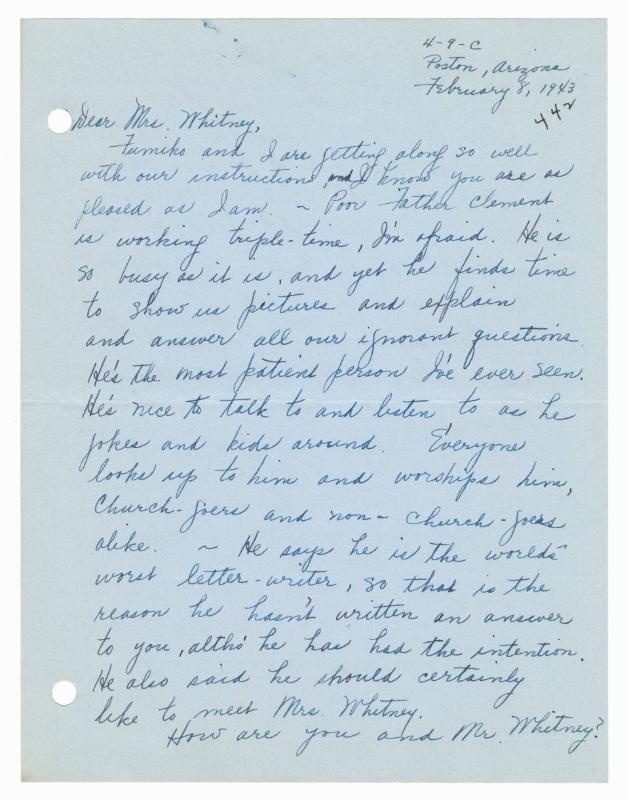 4-9-C
Poston, Arizona
February 8, 1943
442
Dear Mrs. Whitney,
Fumiko and I are getting along so well
with our instruction, and I know you are as
pleased as I am. ~ Poor Father Clement
is working triple-time, I'm afraid. He is
so busy as it is, and yet he finds time
to show us pictures and explain
and answer all our ignorant questions.
He's the most patient person I've ever seen.
He's nice to talk to and listen to as he
jokes and kids around. Everyone
looks up to him and worships him,
church-goers and non-church-goers
alike. ~ He says he is the world's
worst letter-writer, so that is the
reason he hasn't written an answer
to you, altho' he has had the intention.
He also said he should certainly
like to meet Mrs. Whitney.
How are you and Mr. Whitney?